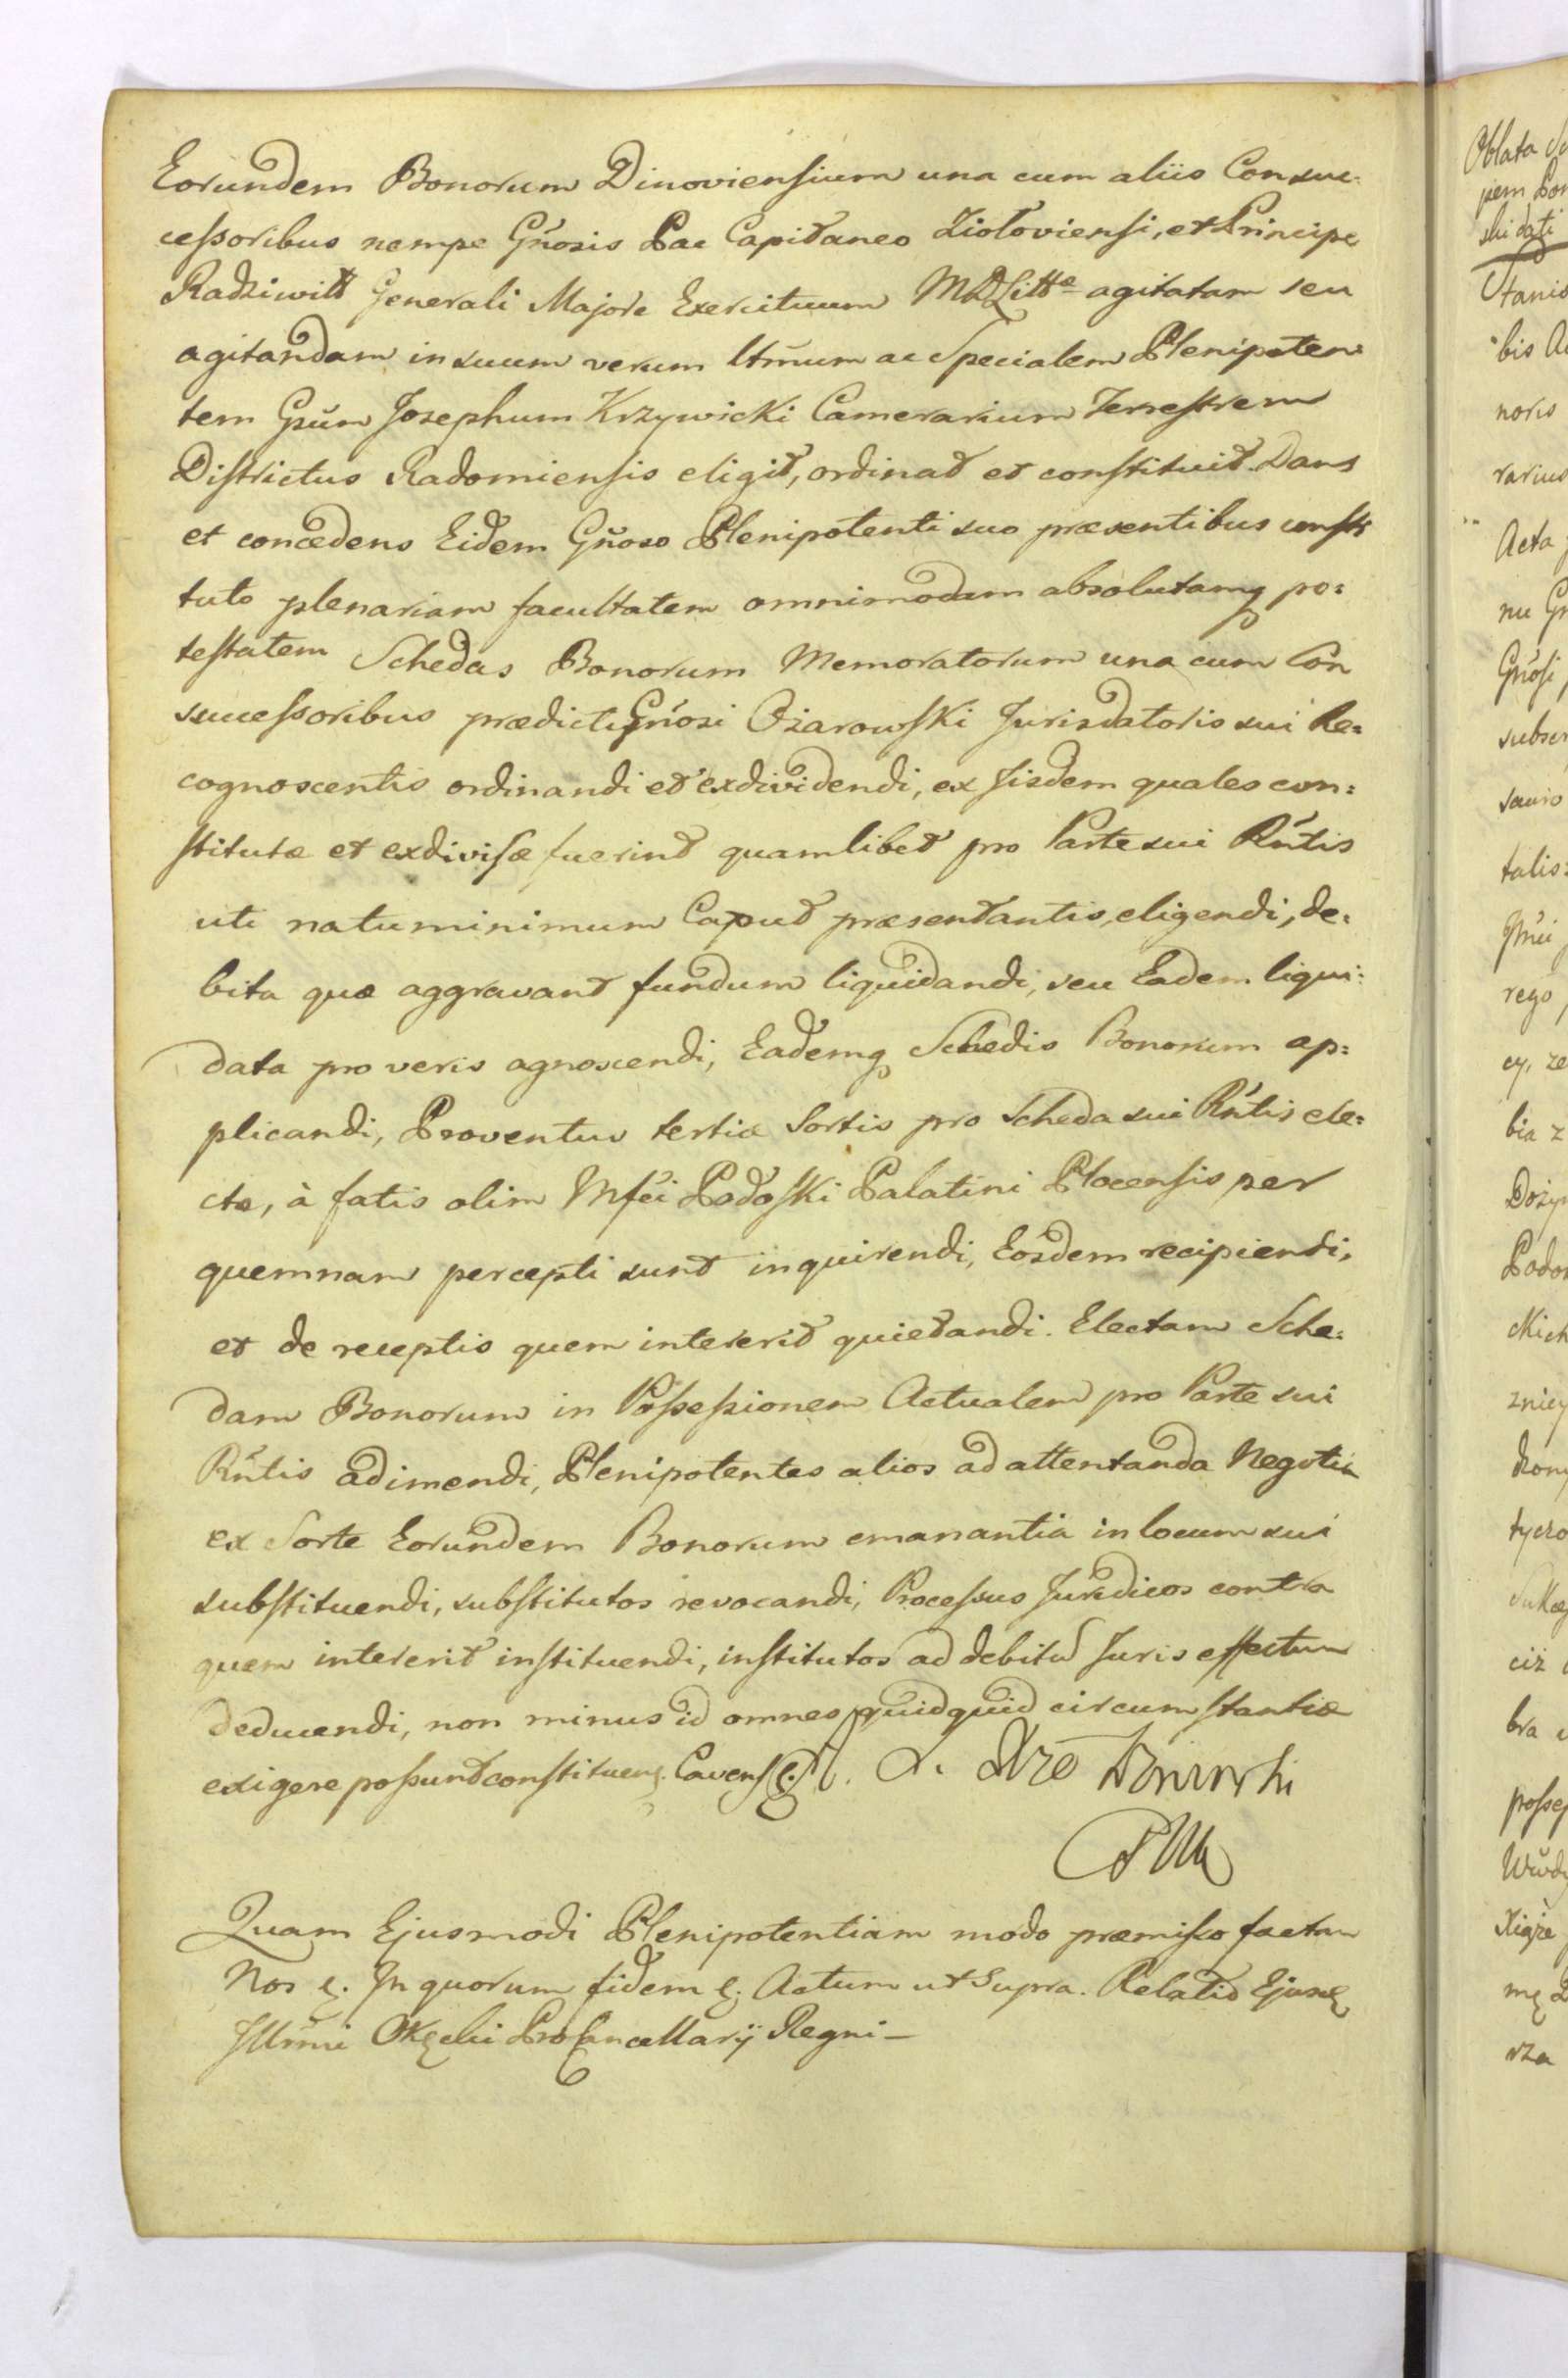 Eorundem Bonorum Dinoviensium una cum aliis Consuc-
cessoribus nempe Gñosis Pac Capitaneo Ziołoviensi, et Principe
Radziwiłł Generali Majore Exercituum MDLittæ agitatam seu
agitandam in suum verum ltmum ac Specialem Plenipoten:
tem Gsum Josephum Krzywicki Camerarium Terrestrem
Districtus Radomiensis eligit, ordinat et constituit. Dans
et concedens Eidem Gñoso Plenipotenti suo præsentibus consti
tuto plenariam facultatem omnimodam absolutamq po:
testatem Schedas Bonorum Memoratorum una cum Con
successoribus prædicti Gñosi Ożarowski Jurisdatoris sui Re=
cognoscentis ordinandi et exdividendi, ex Jisdem quales con:
stitutæ et exdivisæ fuerint quamlibet pro Parte sui Rntis
uti natu minimum Caput præsentantis, eligendi, de:
bita quæ aggravant fundum liquidandi, seu Eadem liqui:
data pro veris agnoscendi, Eademq Schedis Bonorum ap:
plicandi, Proventus tertiæ Sortis pro Scheda sui Rntis ele:
ctæ, à fatis olim Mfci Podoski Palatini Plocensis per
quemnam percepti sunt inquirendi, Eosdem recipiendi,
et de receptis quem intererit quietandi. Electam Sche:
dam Bonorum in Possessionem Actualem pro Parte sui
Rntis adimendi, Plenipotentes alios ad attentanda Negotia
ex Sorte Eorundem Bonorum emanantia in locum sui
substituendi, substitutos revocandi, Processus Juridicos contra
quem intererit instituendi, institutos ad debitu Juris effectum
deducendi, non minus id omnes quidquid circumstantiæ
exigere possunt constituen. Cavens
Quam Ejusmodi Plenipotentiam modo præmisso factam
Nos &. In quorum fidem &. Actum ut Supra. Relatio Ejusd
Jllmi Okęcki ProCancellarij Regni -
Oblata
Stanis
bis
noris
rarius
Acta
nu
Gñosi
talis:
rego
cy, ze
bia z